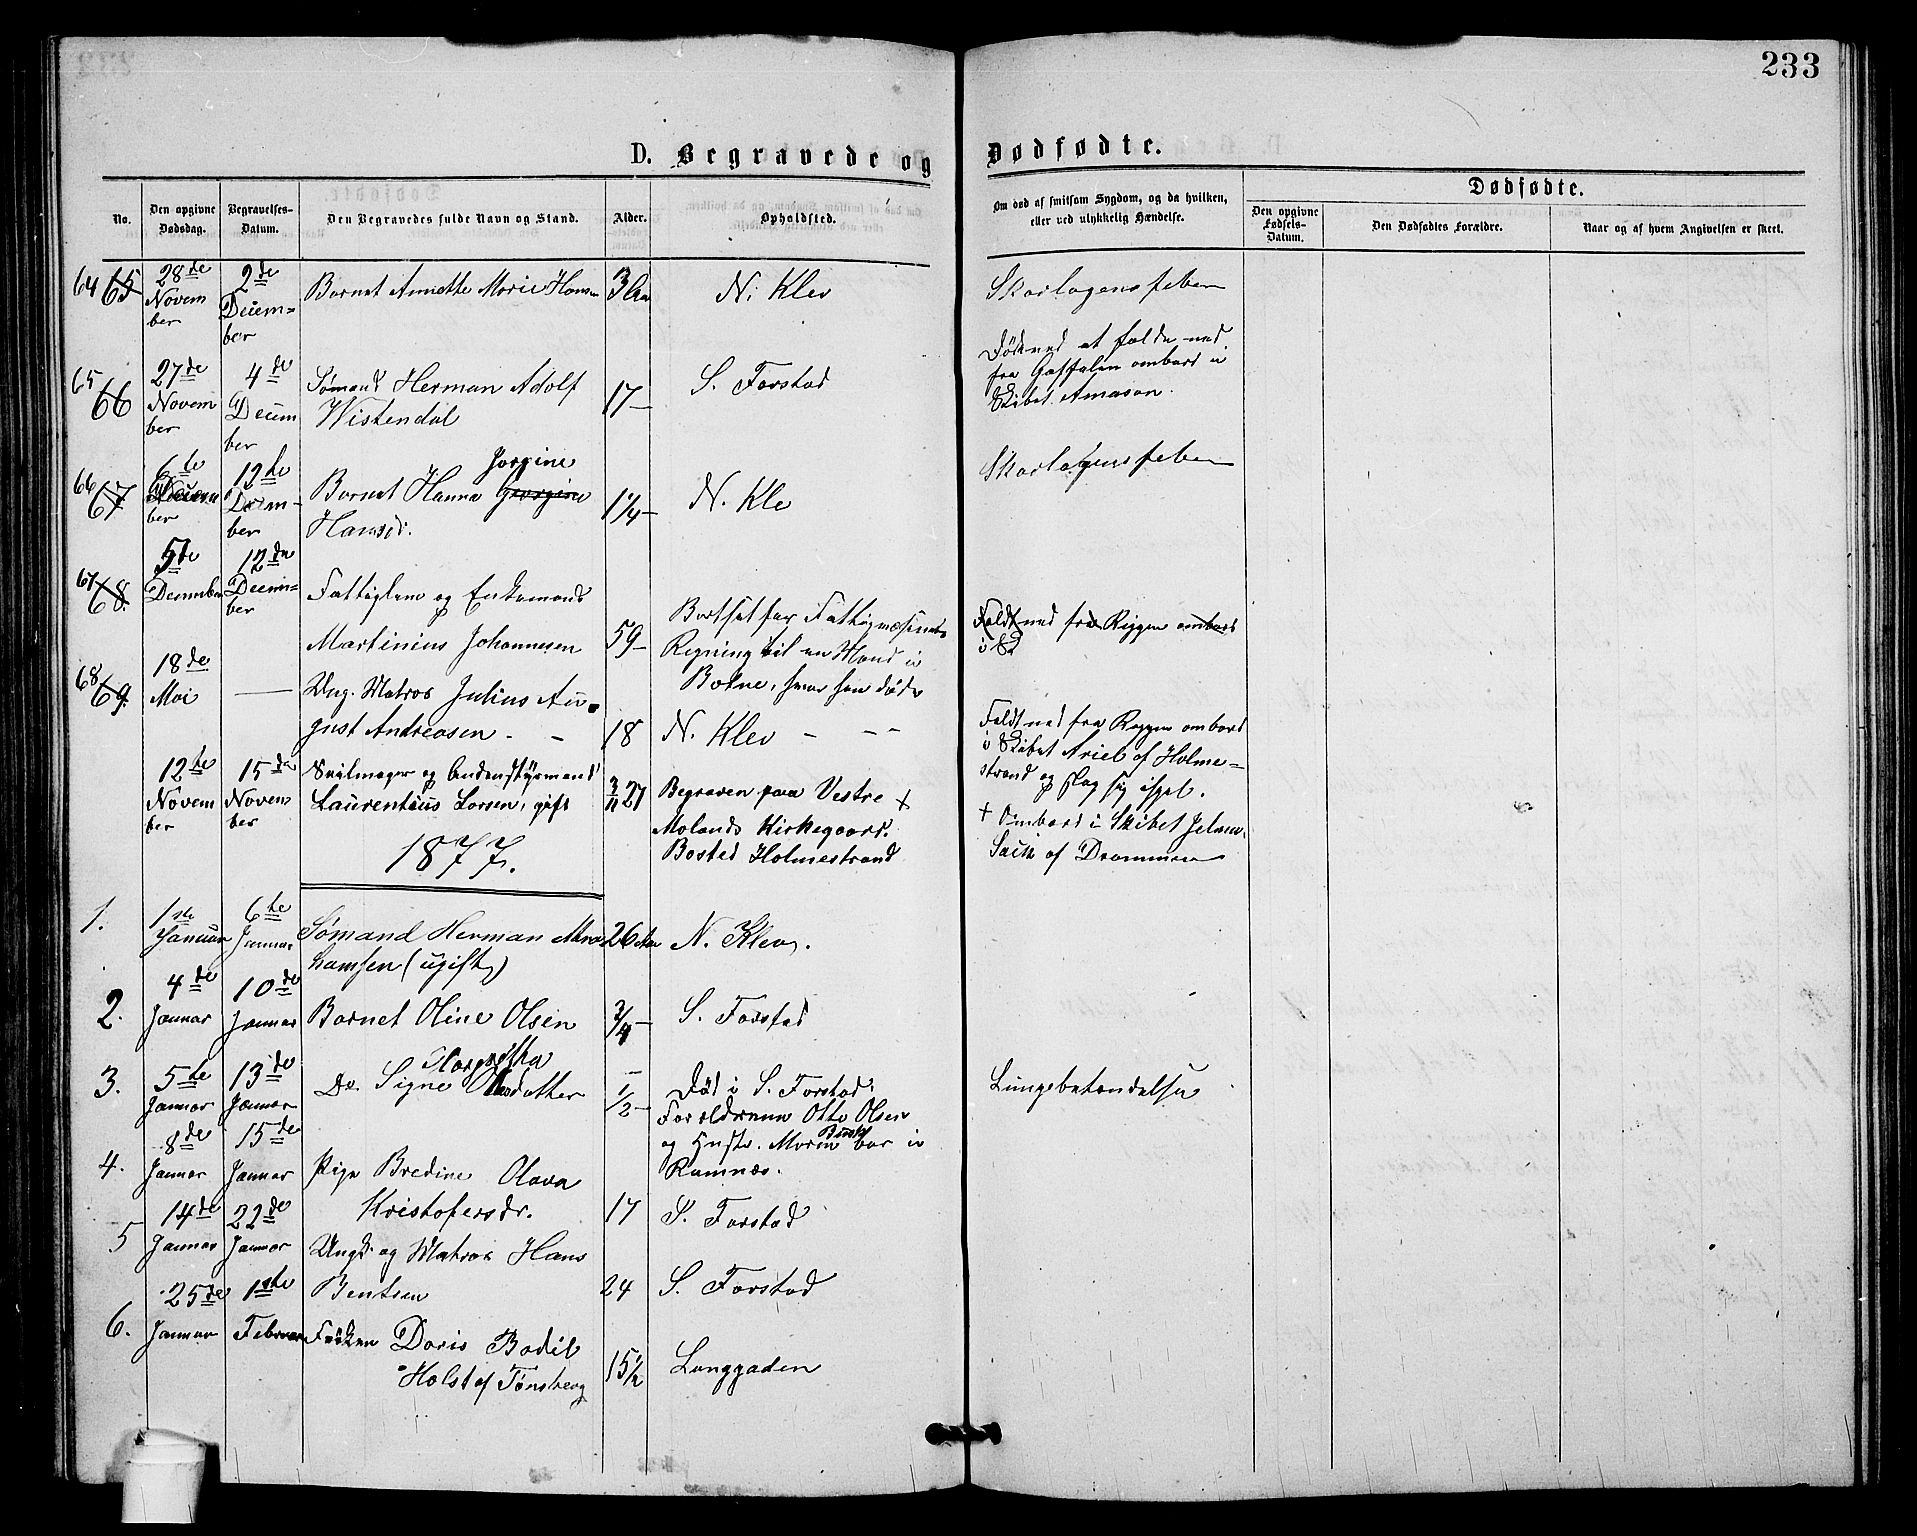 233
D. Begravede og Dødfødte.
No.
Den opgivne Dødsdag.
Begravelses-Datum.
Den Begravedes fulde Navn og Stand.
Alder.
Opholdsted.
Om død af smitsom Sygdom, og da hvilken, eller ved ulykkelig Hændelse.
Dødfødte.
Den opgivne Fødsels-Datum.
Den Dødfødtes Forældre.
Naar og af hvem Angivelsen er skeet.
64 65 28de November 2de December Barnet Annette Marie Hansen 3 Aar N. Klev Skarlagensfeber
65 66 27de November 4de December Sømand Herman Adolf
Wistendal 17 S. Forstad
Død ved at falde ned
fra Gaffelen ombord i
Skibet Amason.
66 67 6te December 12te December Jorgine
Barnet Hanna Georgine
Hansd. 1 1/4 N. Klev Skarlagensfeber
67 68. 5de December 12de December Fattiglem og Enkemand
Martinius Johannesen 59
Bortsat for Fattigvæsenets
Regning til en Mand i
Botne, hvor han døde
Faldt ned fra Riggen ombord
i
68 69. 18de Mai — Ung. Matros Julius Au-
gust Andreasen 18 N. Klev
Faldt ned fra Riggen ombord
i Skibet Ariel af Holme-
strand og slog sig ihjel.
12te November 15de November Seilmager og Andenstyrmand
Laurentius Larsen, gift 27
Begraven paa Vestre +
Molands Kirkegaard.
Bosted Holmestrand
+ Ombord i Skibet
af Drammen
1877.
1. 1ste Januar 6te Januar Sømand Herman Abra-
hamsen (ugift) 26 Aar N. Klev.
2. 4de Januar 10de Januar Barnet Oline Olsen 3/4 S. Forstad
3. 5te Januar 13de Januar
Do. Signe Olsdatter 1/2
Død i S. Forstad.
Forældrene Otto Olsen
og Hustr. Maren bor i
Ramnæs.
Lungebetændelse
4. 8de Januar 15de Januar Pige Bredine Olava
Kristofersdr. 17 S. Forstad
5 14de Januar 22de Januar Ungk. og Matros Hans
Bentsen 24 S. Forstad
6. 25de Januar 1ste Februar Frøken Doris Bodil
Holst af Tønsberg 15 1/2 Langgaden